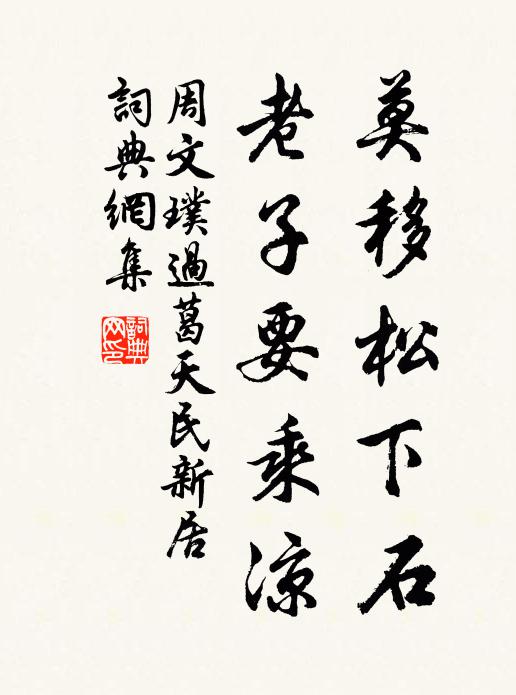 莫移松下石
老子要乘凉
周文璞過葛天民新居
詞典網集
詞典网印